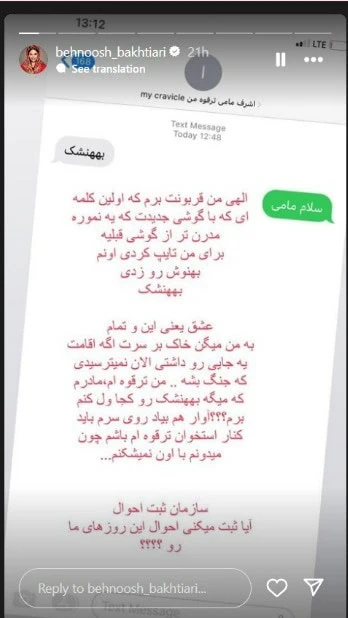 13:12
behnoosh_bakhtiari 21h
See translation
168
LTE
I
اشرف مامی ترقوه من my cravicle
Text Message
Today 12:48
بههنشک
سلام مامی
الهی من قربونت برم که اولین کلمه
ای که با گوشی جدیدت که یه نموره
مدرن تر از گوشی قبلیه
برای من تایپ کردی اونم
بهنوش رو زدی
بههنشک
عشق یعنی این و تمام
به من میگن خاک بر سرت اگه اقامت
یه جایی رو داشتی الان نمیترسیدی
که جنگ بشه .. من ترقوه ام،مادرم
که میگه بههنشک رو کجا ول کنم
برم؟؟؟آوار هم بیاد روی سرم باید
کنار استخوان ترقوه ام باشم چون
میدونم با اون نمیشکنم...
سازمان ثبت احوال
آیا ثبت میکنی احوال این روزهای ما
رو ؟؟؟؟
Text Message
Reply to behnoosh_bakhtiari...